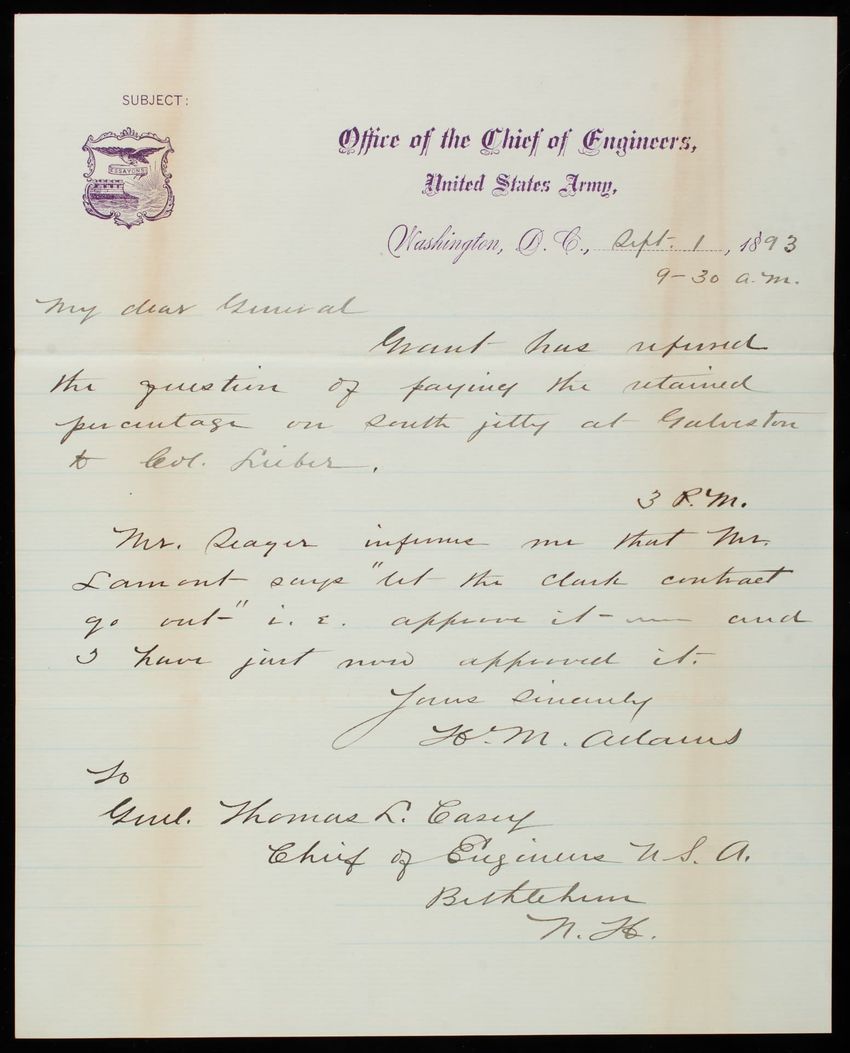 SUBJECT:
ESSAYONS
Office of the Chief of Engineers,
United States Army,
Washington, D. C., Sept. 1, 1893
9-30 a.m.
My dear General
Grant has referred
the question of paying the retained
percentage on south jetty at Galveston
to Col. Lieber.
3 P.M.
Mr. Seager informs me that Mr.
Lamont says "let the Clark contract
go out" i.e. approve it - and
I have just now approved it.
Yours sincerely
H. M. Adams
To
Genl. Thomas L. Casey
Chief of Engineers U. S. A.
Bethlehem
N. H.